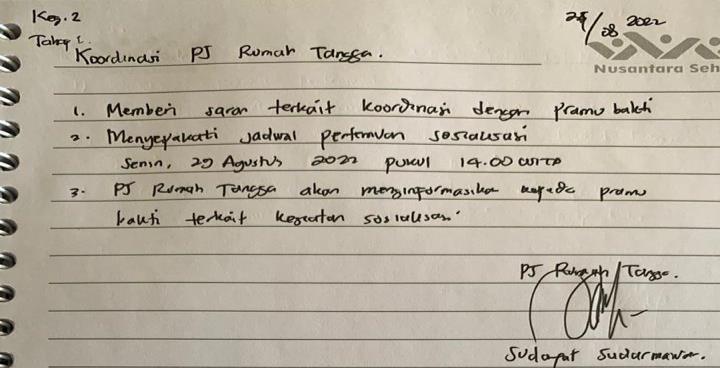 Keg. 2
Tahap 1.
25/08 2022
Nusantara Seh
Koordinasi PJ Rumah Tangga.
1. Memberi saran terkait koordinasi dengan pramu bakti
2. Menyepakati jadwal pertemuan sosialisasi
Senin, 29 Agustus 2022 pukul 14.00 WITA
3. PJ Rumah Tangga akan menginformasikan kepada pramu
bakti terkait kegiatan sosialisasi
PJ Rumah Tangga.
Sudarmawan.